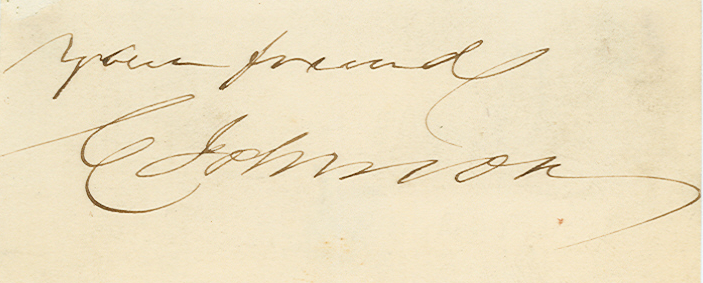 your friend
C Johnson